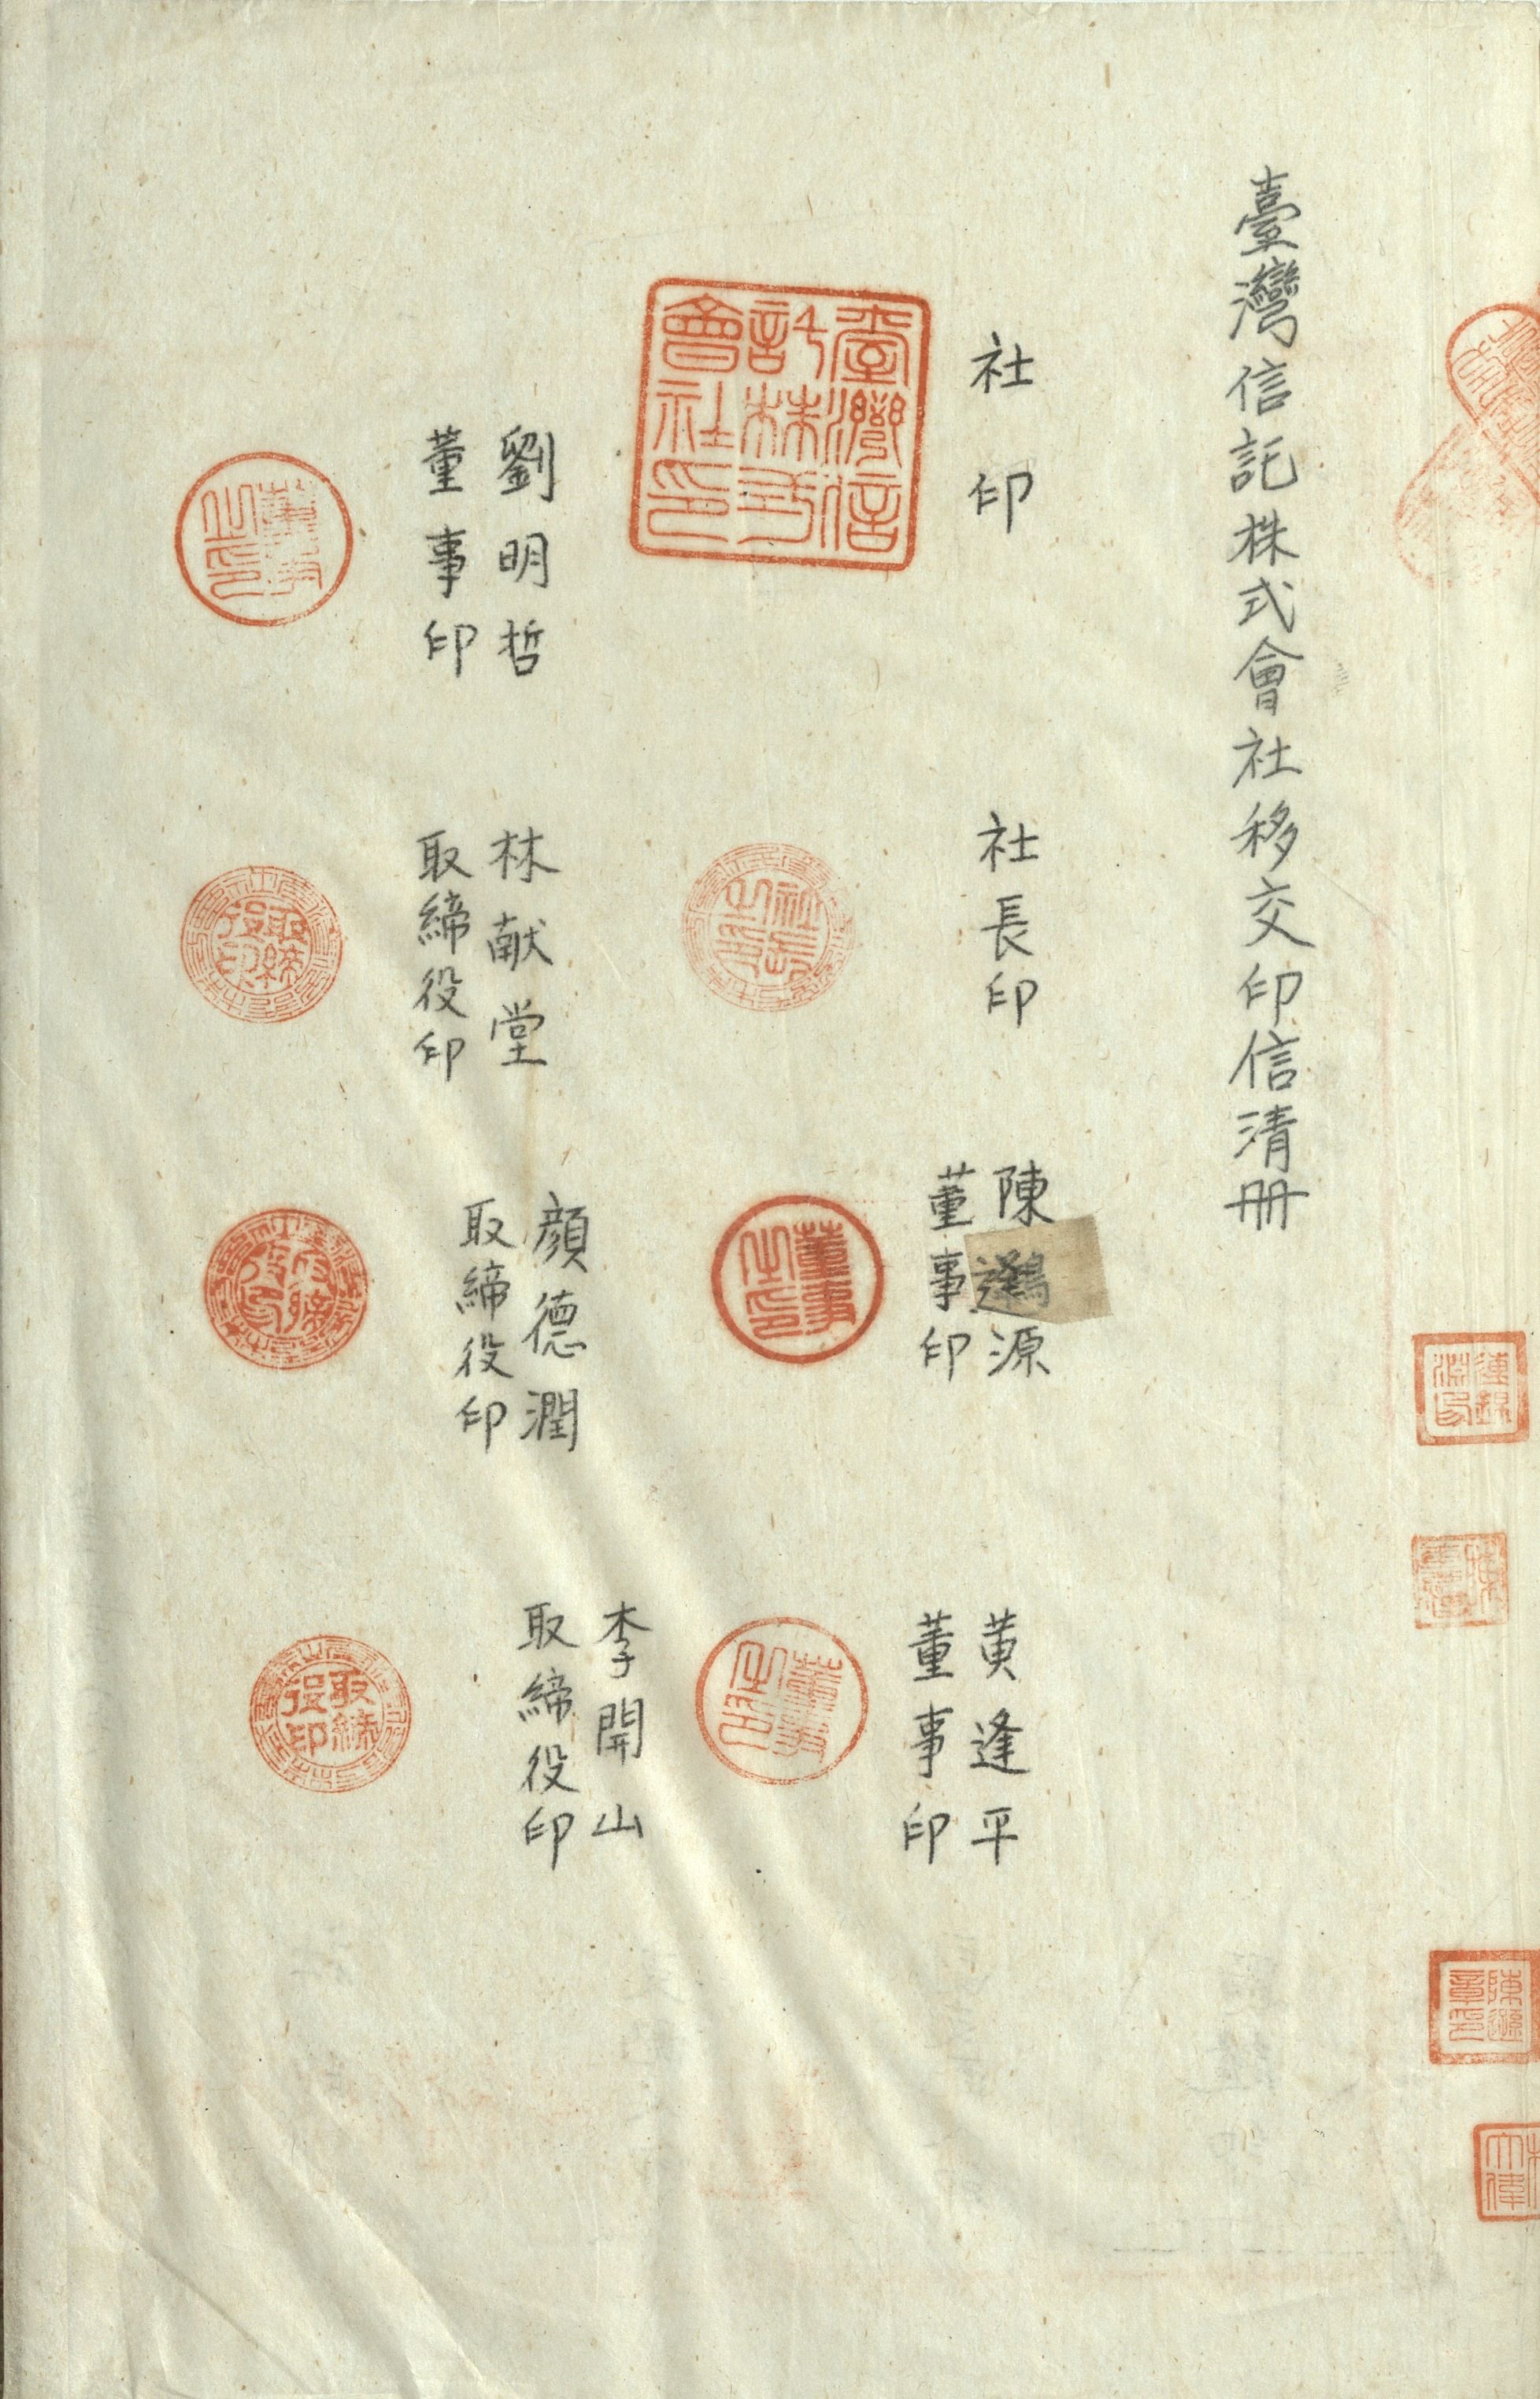 臺灣信託株式會社移交印信清册
社印
臺灣信
託株式
會社印
社長印
社長
之印
陳逢源
董事印
董事
之印
黄逢平
董事印
董事
之印
劉明哲
董事印
董事
之印
林献堂
取締役印
取締
役印
顔德潤
取締役印
取締
役印
李開山
取締役印
取締
役印
陳遜
章印